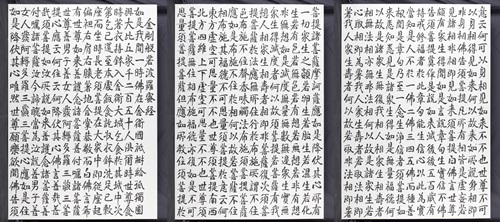 金剛般若波羅蜜經
如是我聞一時佛在舍衛國祇樹給孤獨園
與大比丘衆千二百五十人俱爾時世尊食
時著衣持鉢入舍衛大城乞食於其城中次
第乞已還至本處飯食訖收衣鉢洗足已敷
座而坐時長老須菩提在大衆中即從座起
偏袒右肩右膝著地合掌恭敬而白佛言希
有世尊如來善護念諸菩薩善付囑諸菩薩
世尊善男子善女人發阿耨多羅三藐三菩
提心應云何住云何降伏其心佛言善哉善
哉須菩提如汝所說如來善護念諸菩薩善
付囑諸菩薩汝今諦聽當為汝說善男子善
女人發阿耨多羅三藐三菩提心應如是住
如是降伏其心唯然世尊願樂欲聞佛告
須菩提諸菩薩摩訶薩應如是降伏其心所有
一切衆生之類若卵生若胎生若濕生若化
生若有色若無色若有想若無想若非有想
非無想我皆令入無餘涅槃而滅度之如是
滅度無量無數無邊衆生實無衆生得滅度
者何以故須菩提若菩薩有我相人相衆生
相壽者相即非菩薩復次須菩提菩薩於法
應無所住行於布施所謂不住色布施不住
聲香味觸法布施須菩提菩薩應如是布施
不住於相何以故若菩薩不住相布施其福
德不可思量須菩提於意云何東方虛空可
思量不不也世尊須菩提南西
北方四維上下虛空可思量不不也世尊須
菩提菩薩無住相布施福德亦復如是不可
思量須菩提菩薩但應如所教住須菩提於
意云何可以身相見如來不不也世尊不可
以身相得見如來何以故如來所說身相即
非身相佛告須菩提凡所有相皆是虛妄若
見諸相非相即見如來須菩提白佛言世尊
頗有衆生得聞如是言說章句生實信不佛
告須菩提莫作是說如來滅後後五百歲有
持戒修福者於此章句能生信心以此為實
當知是人不於一佛二佛三四五佛而種善
根已於無量千萬佛所種諸善根聞是章句
乃至一念生淨信者須菩提如來悉知悉見
是諸衆生得如是無量福德何以故是諸衆
生無復我相人相衆生相壽者相無法相亦
無非法相何以故是諸衆生若心取相即為
著我人衆生壽者若取法相即著我人衆生